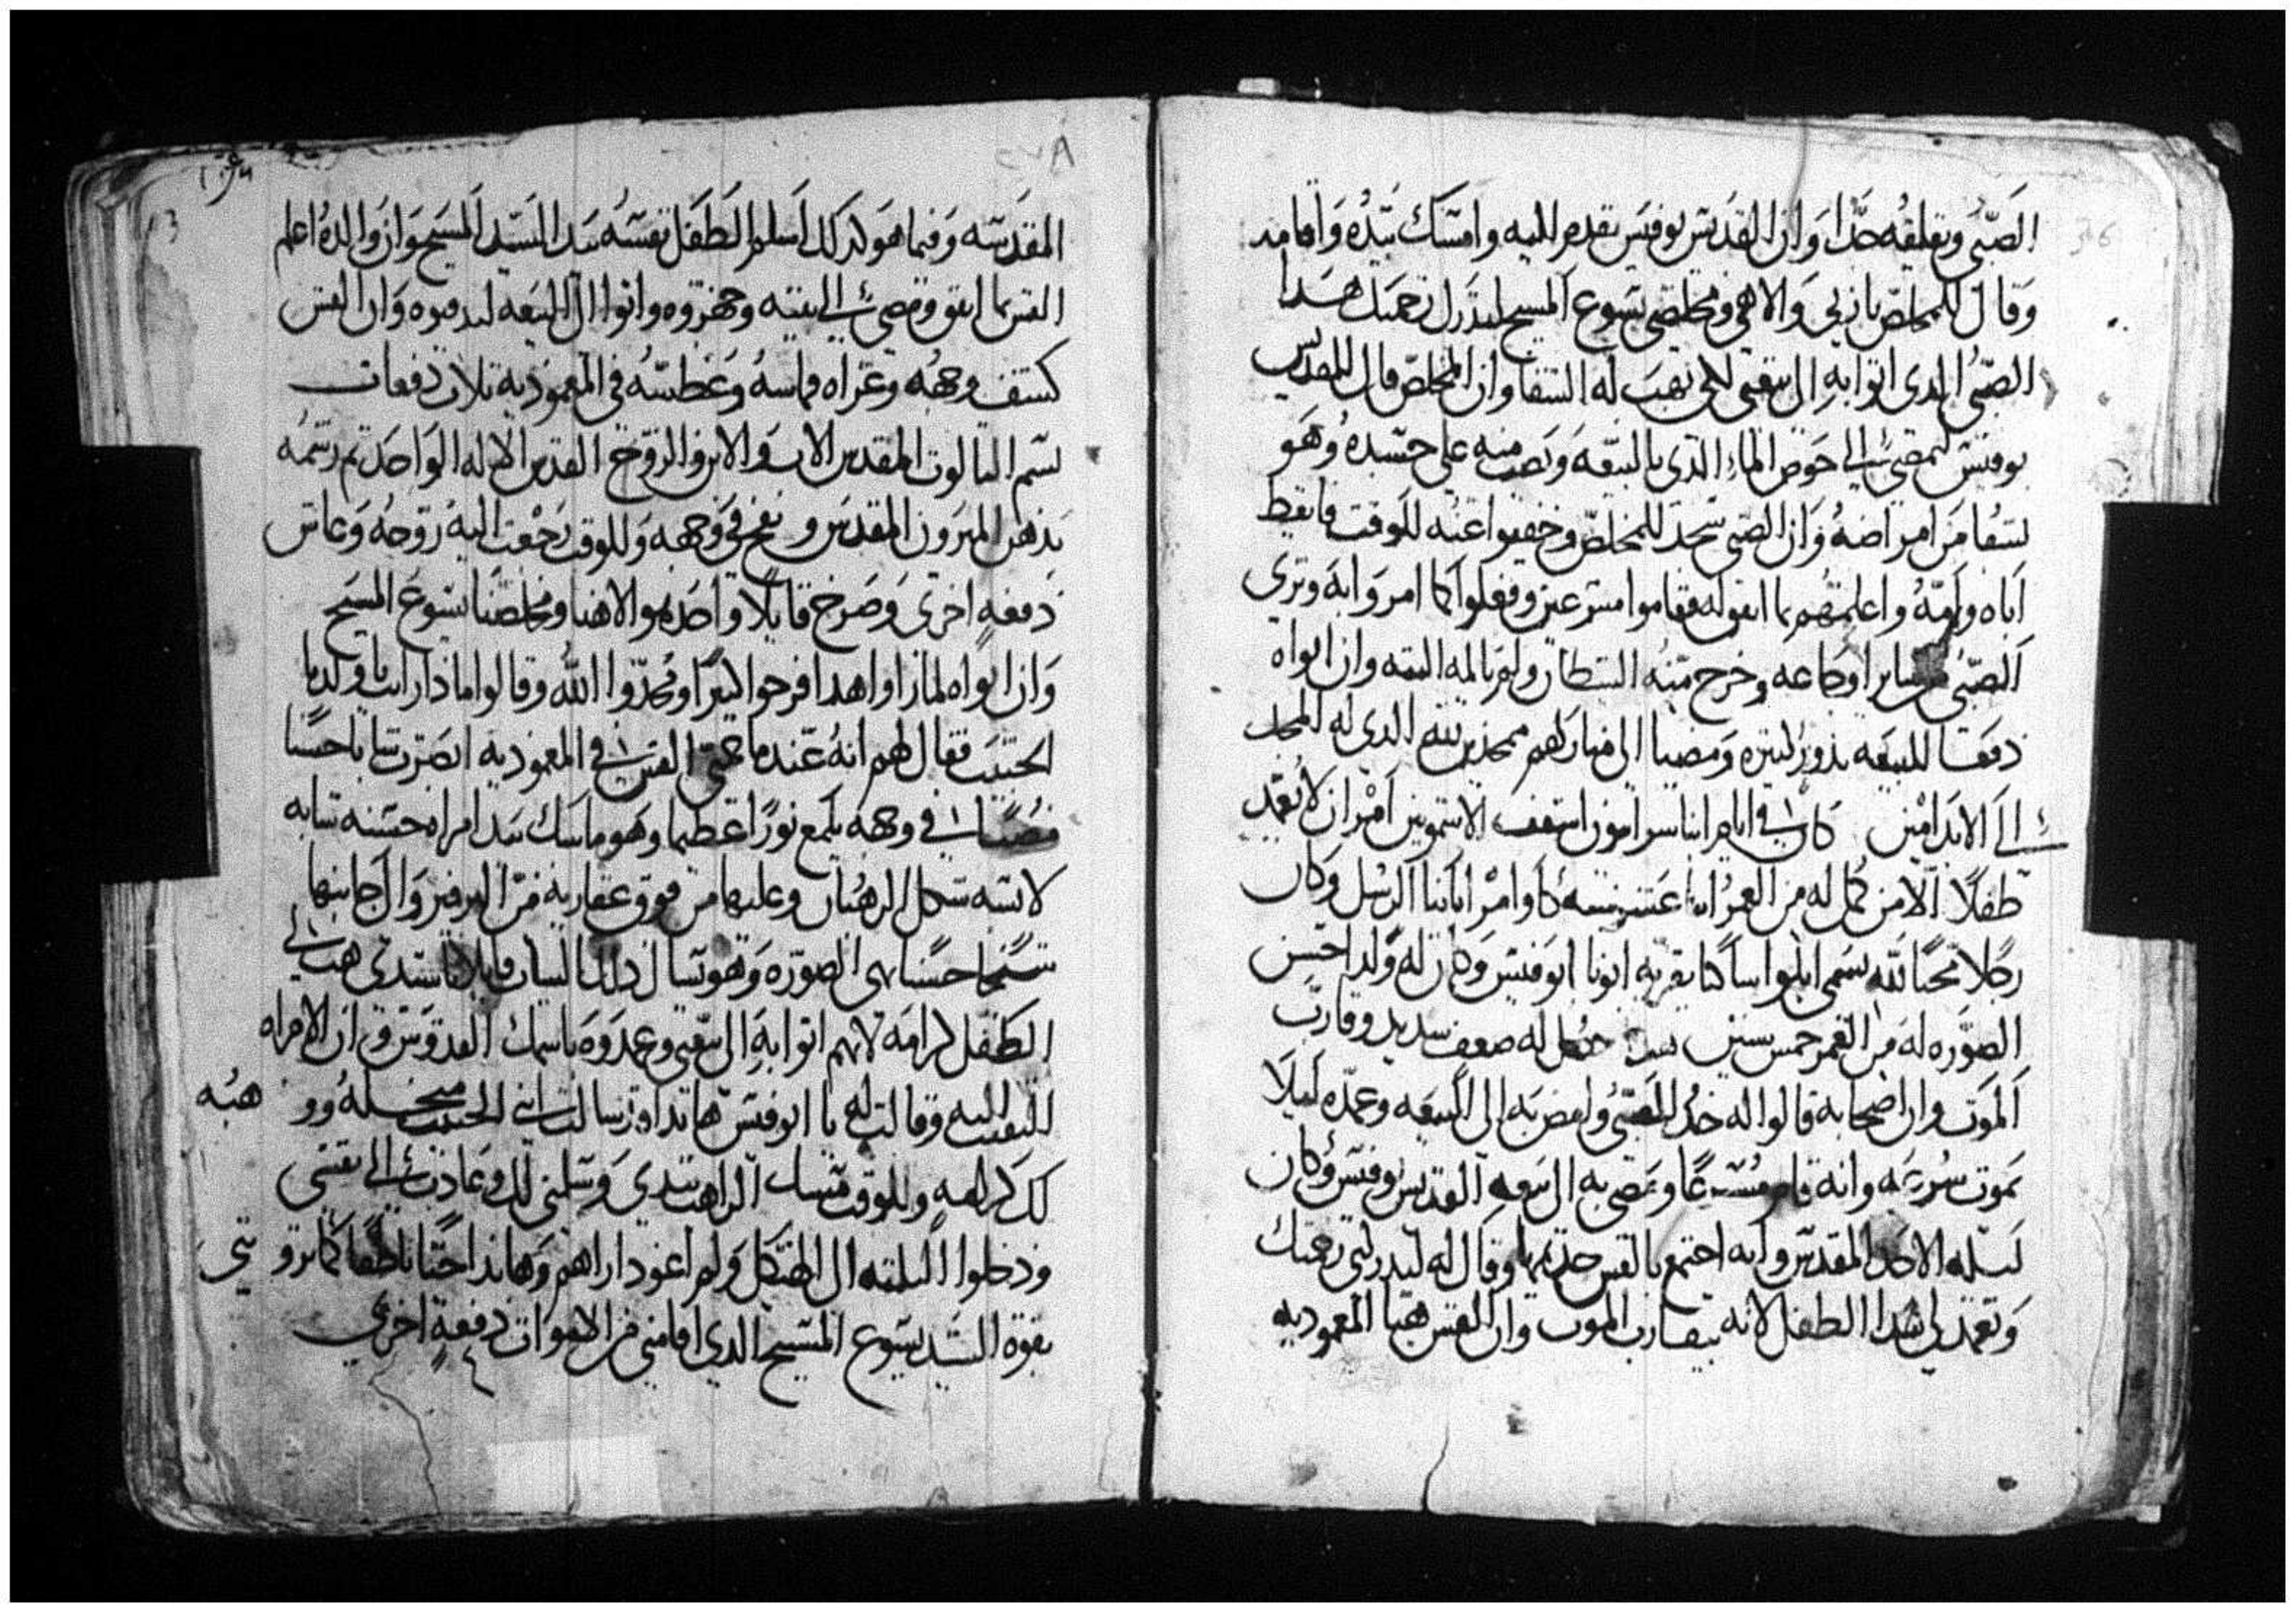 الصبى وتقلقه جدا وان القديس بوفيس تقدم اليه وامسك بيده واقامه
وقال للمخلص يا ربى والاهى ومخلصى يسوع المسيح لتدرك رحمتك هدا
الصبى الدى اتوا به الى بيعتى لكى تهب له الشفا وان المخلص قال للقديس
بوفيس تمضى الى حوض الماء الدى بالبيعه وتصب منه على جسده وهو
يشفا من امراضه وان الصبى سجد للمخلص وخفيوا عنه للوقت فايقظ
اباه وامه واعلمهم بما اتفق له فقاموا مسرعين وفعلوا كما امر وابه وبرى
الصبى من ساير اوجاعه وخرج منه الشيطان ولم يالمه البته وان ابواه
دفعا للبيعه ندور كثيره ومضيا الى منازلهم ممجدين لله الدى له المجد
الى الابد امين كان فى ايام ابينا اسقف الاشمونين امر ان لا يعمد
طفلا الا من كمل له من العمر سنه كاوامر اباينا الرسل وكان
رجلا محبا لله يسمى ساكنا بقرية ابونا ابوفيس وكان له ولدا حسن
الصوره له من العمر خمس سنين حصل له ضعف شديد وقارب
الموت وان اصحابه قالوا له خد الصبى وامض به الى البيعه وعمده ليلا
يموت سرعه وانه قام مسرعا ومضى به الى بيعه القديس بوفيس وكان
ليلة الاحد المقدس وانه اجتمع بالقس خديمها وقال له لتدركنى رحمتك
وتعمد لى هدا الطفل لانه يقارب الموت وان القس هيا المعموديه
المقدسه وفيما هو كدلك اسلم الطفل نفسه بيد السيد المسيح وان والده اعلم
القس بما اتفق ومضى الى بيته وجهزوه واتوا الى البيعه ليدفنوه وان القس
كشف وجهه وعراه قماشه وغطسه فى المعموديه تلات دفعات
بسم التالوت المقدس الاب والابن والروح القدس الاله الواحد ثم رشمه
بدهن الميرون المقدس ونفخ فى وجهه وللوقت رجعت اليه روحه وعاش
دفعه اخرى وصرخ قايلا واحد هو الاهنا ومخلصنا يسوع المسيح
وان ابواه لما راوا هدا فرحوا كثيرا ومجدوا الله وقالوا ماذا رايت يا ولدنا
الحبيب فقال لهم انه عندما القس فى المعموديه ابصرت شابا حسنا
فى وجهه يلمع نورا عظيما وهو ماسك بيد امراه حسنه شابه
لابسه شكل الرهبان وعليها من فوق عفاريه من البرفير والى جانبها
شيخا حسنا بهى الصوره وهو يسال دلك الشاب قايلا يا سيدى هب لى
الطفل كرامه لانهم اتوا به الى بيعتى وعمدوه باسمك القدوس وان الامراه
التفت اليه وقالت له يا ابوفيس هاندا اوتر سالت ابنى الحبيب من اجله ووهبه
لك كرامه وللوقت مسك الراهب بيدى وسلمنى لك وعادت الى نفسى
ودخلوا الثلثه الى الهيكل ولم اعود اراهم وهاندا حيا ناطقا كما ترونى
بقوة السيد يسوع المسيح الدى اقامنى من الاموات دفعة اخرى